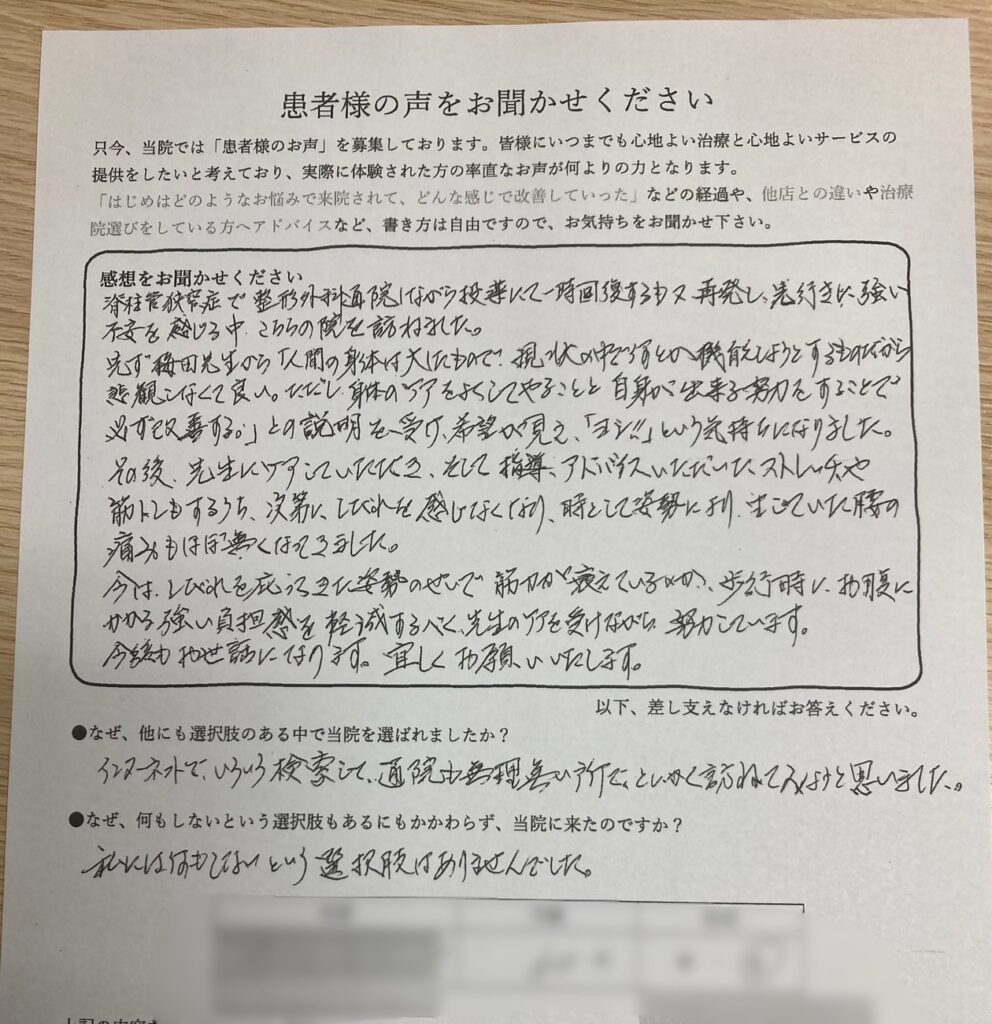 患者様の声をお聞かせください
只今、当院では「患者様のお声」を募集しております。皆様にいつまでも心地よい治療と心地よいサービスの
提供をしたいと考えており、実際に体験された方の率直なお声が何よりの力となります。
「はじめはどのようなお悩みで来院されて、どんな感じで改善していった」などの経過や、他店との違いや治療
院選びをしている方へアドバイスなど、書き方は自由ですので、お気持ちをお聞かせ下さい。
感想をお聞かせください
脊柱管狭窄症で整形外科通院しながら投薬にて一時回復するも又再発し、先行きに強い
不安を感じる中、こちらの院を訪ねました。
先ず梅田先生から「人間の身体は大したもので、現状の中で何とか機能しようとするものだから
悲観しなくて良い。ただし、身体のケアをよくしてやることと自身が出来る努力をすることで
必ず改善する。」との説明を受け、希望が見え、「ヨシ!!」という気持ちになりました。
その後、先生にケアしていただき、そして指導、アドバイスいただいたストレッチや
筋トレもするうち、次第に、しびれを感じなくなり、時として姿勢により、生じていた腰の
痛みもほぼ無くなってきました。
今は、しびれを庇ってきた姿勢のせいで筋力が衰えているのか、歩行時に、お腹に
かかる強い負担感を軽減するべく、先生のケアを受けながら、努力しています。
今後もお世話になります。宜しくお願いいたします。
以下、差し支えなければお答えください。
●なぜ、他にも選択肢のある中で当院を選ばれましたか？
インターネットで、いろいろ検索して、通院も無理無い所で、とにかく訪ねてみようと思いました。
●なぜ、何もしないという選択肢もあるにもかかわらず、当院に来たのですか？
私には何もしないという選択肢はありませんでした。